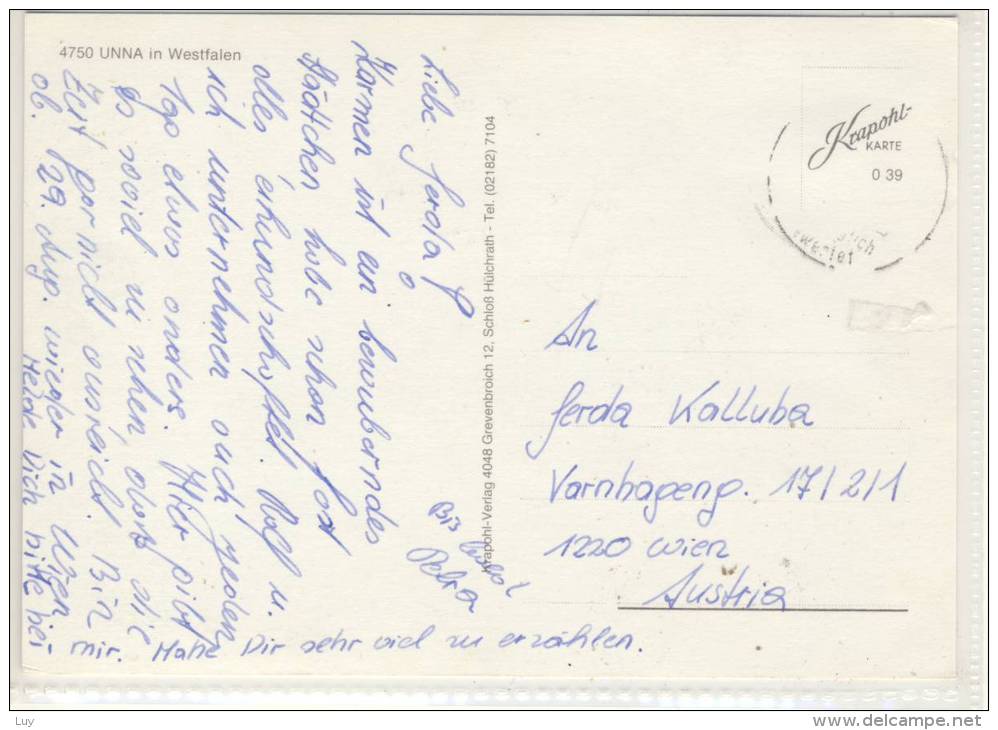 4750 UNNA in Westfalen
Liebe Gerda!
Kamen ist ein bezauberndes
Städtchen habe schon fast
alles erkundschaftet. Ralf u.
ich unternehmen auch jeden
Tag etwas anders. Hier gibt
es soviel zu sehen, daß die
Zeit gar nicht ausreicht. Bin
ab 29. Aug. wieder in Wien
Melde Dich bitte bei
mir. Habe Dir sehr viel zu erzählen.
Bis bald
Petra
Krapohl-Verlag 4048 Grevenbroich 12, Schloß Hülchrath - Tel. (02182) 7104
Krapohl-
KARTE
0 39
An
Gerda Kalluba
Varnhageng. 17/2/1
1220 Wien
Austria
Luy
www.delcampe.net